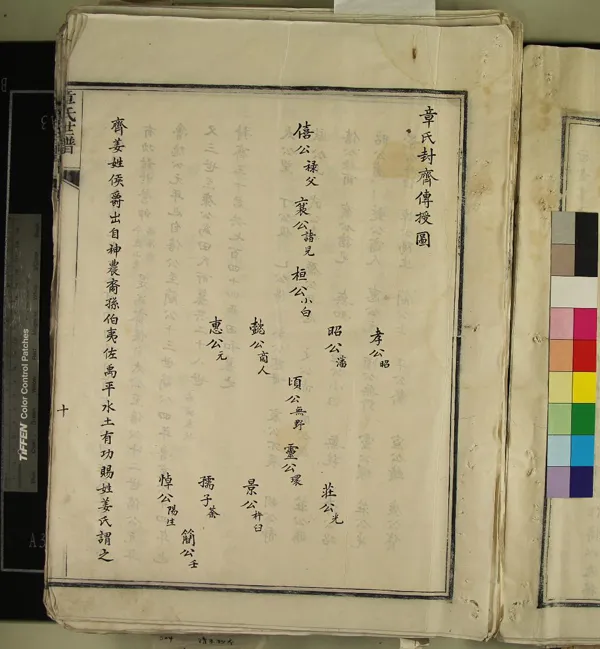 章氏封齊傳授圖
僖公祿父 襄公諸兒 桓公小白
孝公昭
昭公潘
懿公商人
惠公元
頃公無野 靈公環
莊公光
景公杵臼
孺子荼
悼公陽生
簡公壬
齊姜姓侯爵出自神農裔孫伯夷佐禹平水土有功賜姓姜氏謂之
章氏世譜
十
TIFFEN Color Control Patches